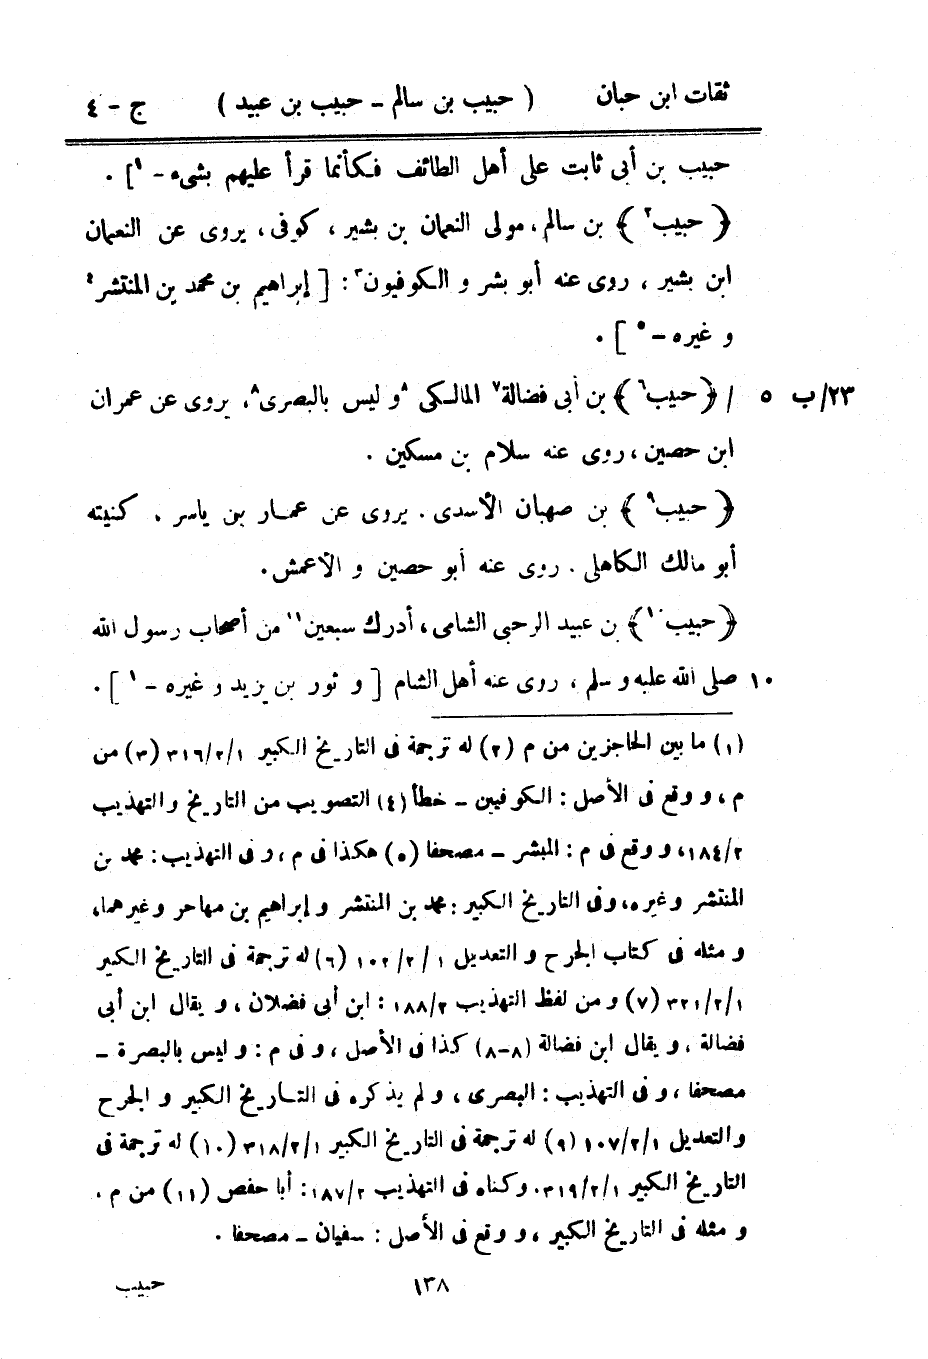 ثقات ابن حبان ( حبيب بن سالم - حبيب بن عبيد ) ج - ٤
حبيب بن أبي ثابت على أهل الطائف فكأنما قرأ عليهم بشىء - ١] .
﴿ حبيب٢ ﴾ بن سالم، مولى النعمان بن بشير ، كوفى، يروى عن النعمان
ابن بشير ، روى عنه أبو بشر و الكوفيون٣: [ إبراهيم بن محمد بن المنتشر٤
و غيره - ٥ ] .
٢٣/ب ٥ / ﴿ حبيب٦ ﴾ بن أبى فضالة٧ المالكى ٨و ليس بالبصرى٨، يروى عن عمران
ابن حصين ، روى عنه سلام بن مسكين .
﴿ حبيب٩ ﴾ بن صهبان الأسدى . يروى عن عمار بن ياسر ، كنيته
أبو مالك الكاهلى . روى عنه أبو حصين و الأعمش .
﴿ حبيب١٠ ﴾ بن عبيد الرحبى الشامى ، أدرك سبعين١١ من أصحاب رسول الله
١٠ صلى الله عليه و سلم ، روى عنه أهل الشام [ و ثور بن يزيد و غيره - ١ ] .
(١) ما بين الحاجزين من م (٢) له ترجمة فى التاريخ الكبير ٣١٦/٢/١ (٣) من
م ، و وقع فى الأصل : الكوفيين - خطأ (٤) التصويب من التاريخ و التهذيب
١٨٤/٢، و وقع فى م : المبشر - مصحفا (٥) هكذا فى م ، و فى التهذيب : محمد بن
المنتشر و غيره، و فى التاريخ الكبير : محمد بن المنتشر و إبراهيم بن مهاجر و غيرهما،
و مثله فى كتاب الجرح و التعديل ١٠٢/٢/١ (٦) له ترجمة فى التاريخ الكبير
٣٢١/٢/١ (٧) و من لفظ التهذيب ١٨٨/٢ : ابن أبى فضلان ، و يقال ابن أبى
فضالة ، و يقال ابن فضالة (٨-٨) كذا فى الأصل ، و فى م : و ليس بالبصرة -
مصحفا ، و فى التهذيب : البصرى ، و لم يذكره فى التاريخ الكبير و الجرح
و التعديل ١٠٧/٢/١ (٩) له ترجمة فى التاريخ الكبير ٣١٨/٢/١ (١٠) له ترجمة فى
التاريخ الكبير ٣١٩/٢/١. و كناه فى التهذيب ١٨٧/٢: أبا حفص (١١) من م ،
و مثله فى التاريخ الكبير ، و وقع فى الأصل : سفيان - مصحفا .
١٣٨ حبيب